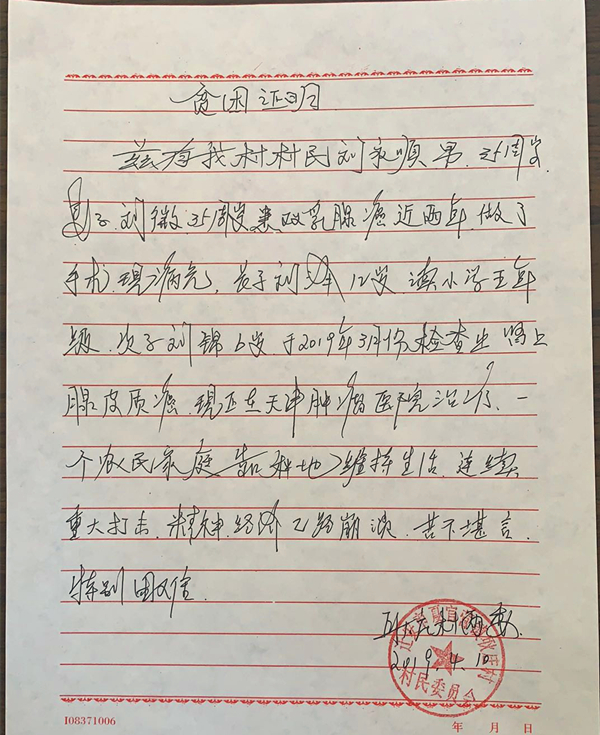 贫困证明
兹有我村村民刘永顺男.35周岁
妻子.刘微35周岁患双乳腺癌近两年.做了
手术.现病危.长子刘 12岁.读小学五年
级.次子刘锦6岁.于2019年3月份检查出肾上
腺皮质癌.现正在天津肿瘤医院治疗.一
个农民家庭靠种地维持生活.连续
重大打击.精神.经济已经崩溃.苦不堪言.
特别困难.
村两委.
2019.4.10
村民委员会
I08371006
年 月 日